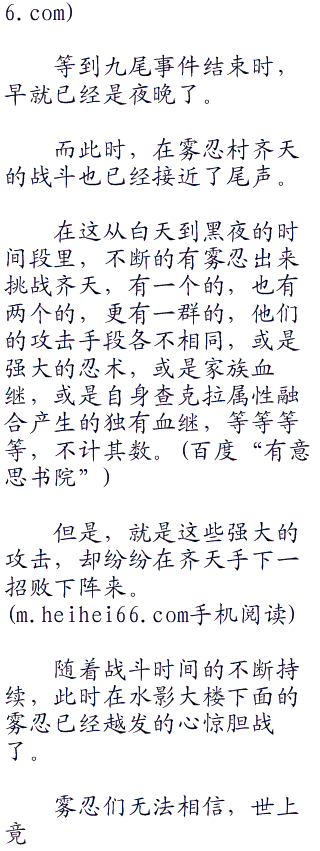 6.com)
等到九尾事件结束时，
早就已经是夜晚了。
而此时，在雾忍村齐天
的战斗也已经接近了尾声。
在这从白天到黑夜的时
间段里，不断的有雾忍出来
挑战齐天，有一个的，也有
两个的，更有一群的，他们
的攻击手段各不相同，或是
强大的忍术，或是家族血
继，或是自身查克拉属性融
合产生的独有血继，等等等
等，不计其数。(百度“有意
思书院”)
但是，就是这些强大的
攻击，却纷纷在齐天手下一
招败下阵来。
(m.heihei66.com手机阅读)
随着战斗时间的不断持
续，此时在水影大楼下面的
雾忍已经越发的心惊胆战
了。
雾忍们无法相信，世上
竟